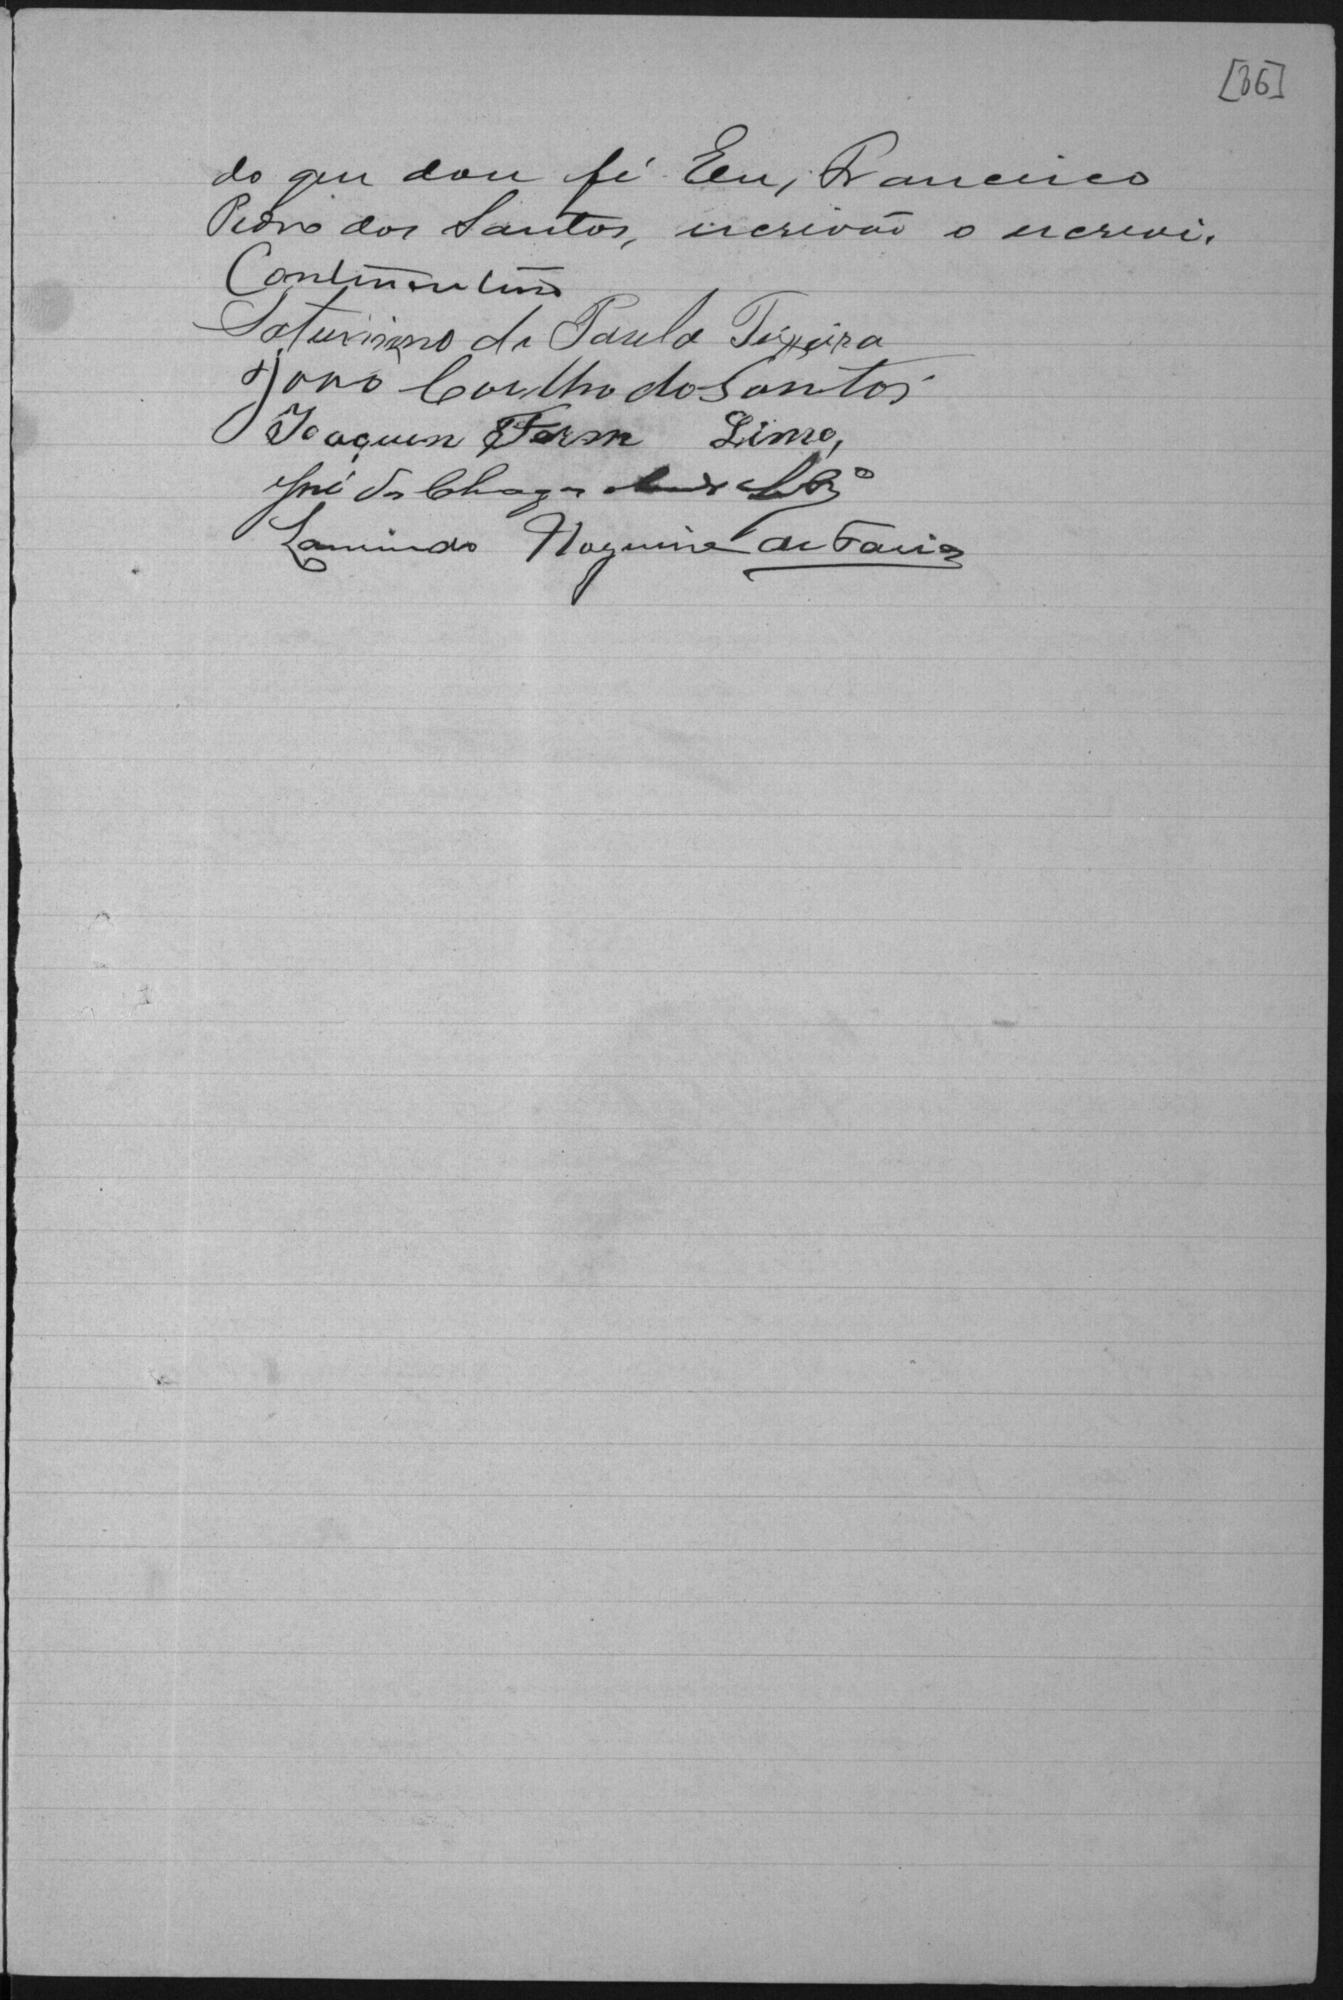 [36]
do que dou fé. Eu, Francisco
Pedro dos Santos, escrivão o escrevi.
Saturnino de Paula Teixeira
João Coelho do Santos
Joaquim Ferm Lima,
José das Chagas
Nogueira de Faria